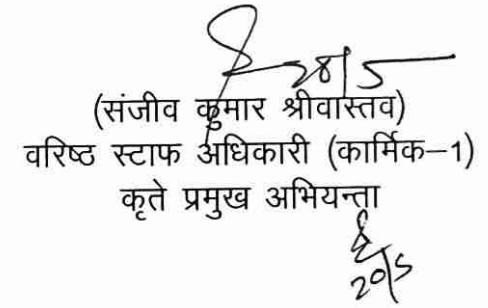 28/5
(संजीव कुमार श्रीवास्तव)
वरिष्ठ स्टाफ अधिकारी (कार्मिक–1)
कृते प्रमुख अभियन्ता
20/5